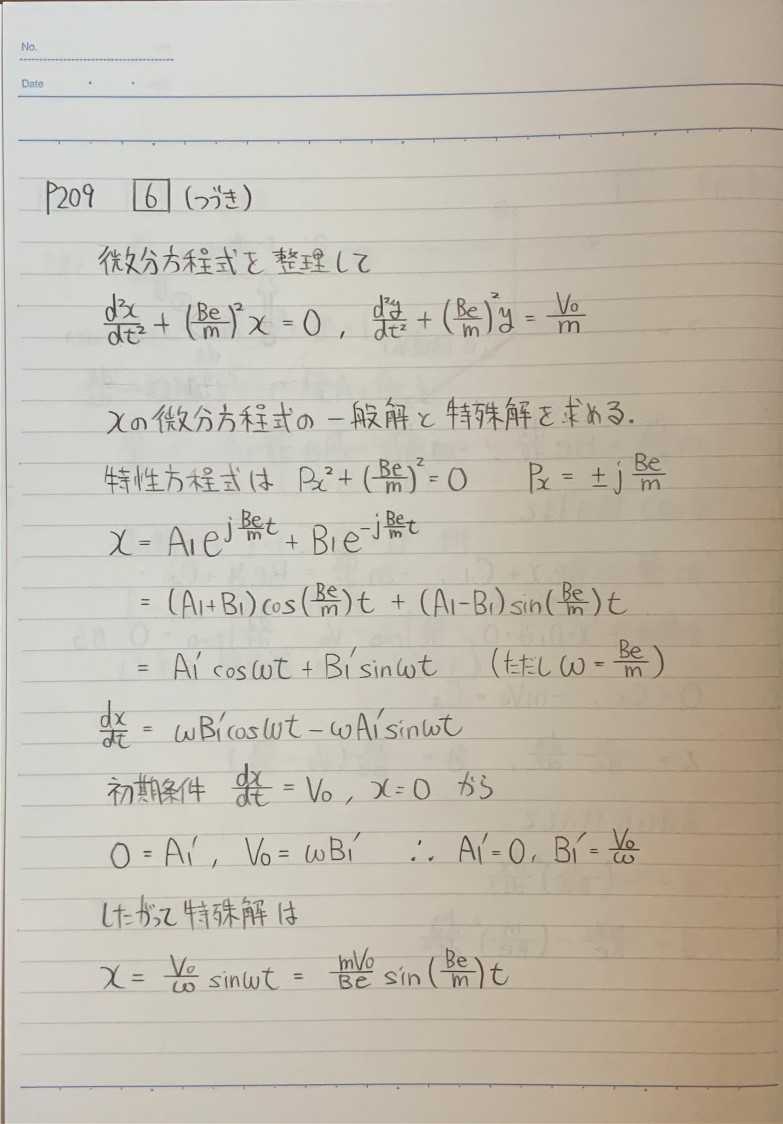 No.
Date ・ ・
P209 6 (つづき)
微分方程式を整理して
d²x/dt² + (Be/m)² x = 0 , d²y/dt² + (Be/m)² y = V₀/m
xの微分方程式の一般解と特殊解を求める.
特性方程式は Px² + (Be/m)² = 0 Px = ± j Be/m
x = A₁e^(j Be/m t) + B₁e^(-j Be/m t)
= (A₁+B₁)cos(Be/m)t + (A₁-B₁)sin(Be/m)t
= A₁′cosωt + B₁′sinωt (ただし ω = Be/m)
dx/dt = ωB₁′cosωt - ωA₁′sinωt
初期条件 dx/dt = V₀ , x=0 から
0 = A₁′ , V₀ = ωB₁′ ∴ A₁′=0, B₁′= V₀/ω
したがって特殊解は
x = V₀/ω sinωt = mV₀/Be sin(Be/m)t